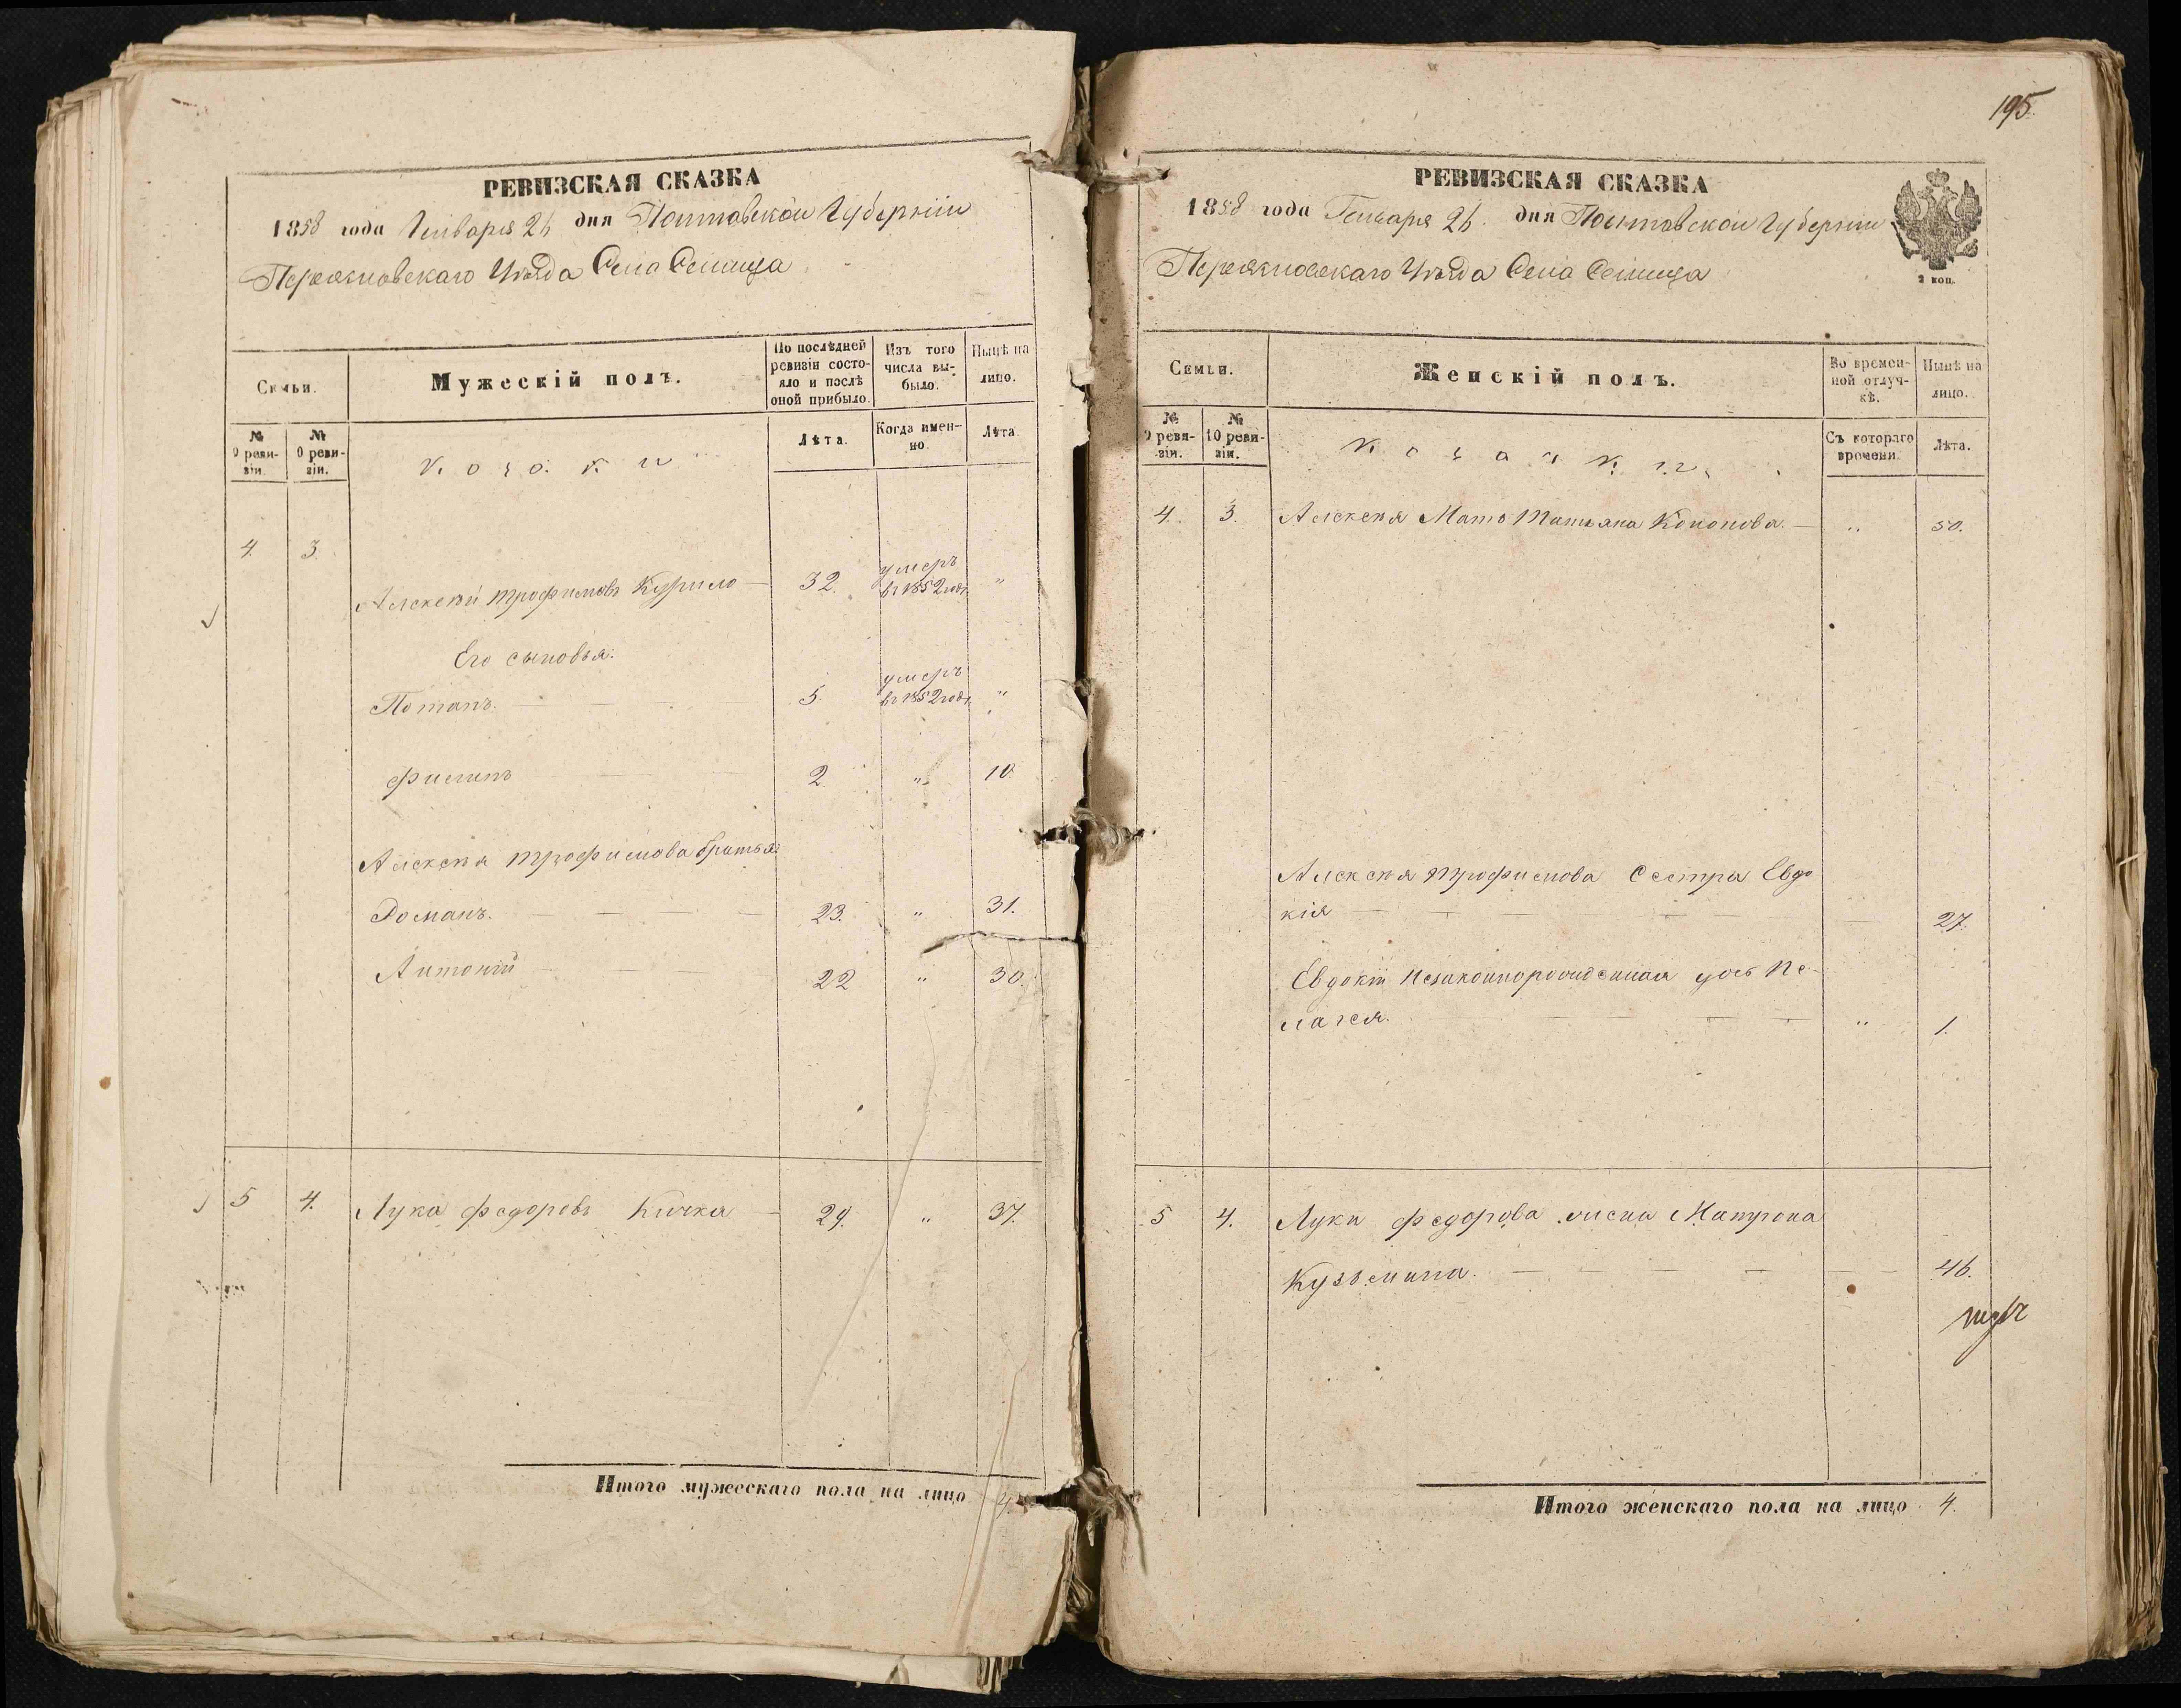 РЕВИЗСКАЯ СКАЗКА
1858 года Генваря 26 дня Полтавской Губерніи
Переяславскаго Уѣзда Села Селища
Семьи.
Мужескій полъ.
По послѣдней ревизіи состояло и послѣ оной прибыло.
Изъ того числа выбыло.
Нынѣ на лицо.
№ 9 ревизіи.
№ 10 ревизіи.
Козаки
Лѣта.
Когда именно.
Лѣта.
4. 3.
Алексѣй Трофимовъ Курило — 32. умеръ въ 1852 годѣ "
Его сыновья:
Потапъ. — — 5. умеръ въ 1852 годѣ "
Филипъ — — 2 " 10.
Алексѣя Трофимова братья:
Романъ. — — — — 23. " 31.
Антоній — — — 22 " 30.
5 4. Лука Федоровъ Кичка — 29. " 37.
Итого мужескаго пола на лицо 4.
195
РЕВИЗСКАЯ СКАЗКА
1858 года Генваря 26. дня Полтавской Губерніи
Переяславскаго Уѣзда Села Селища
2 коп.
Семьи.
Женскій полъ.
Во временной отлучкѣ.
Нынѣ на лицо.
№ 9 ревизіи.
№ 10 ревизіи.
Козачки
Съ котораго времени.
Лѣта.
4. 3. Алексѣя Мать Татьяна Кононова. — " 50.
Алексѣя Трофимова Сестра Евдо
кія — — — — 27.
Евдокіи незаконнорожденная дочь Пе
лагея. — — — — " 1.
5 4. Луки Федорова жена Матрона
Кузьмина. — — — — — 46.
Итого женскаго пола на лицо 4.